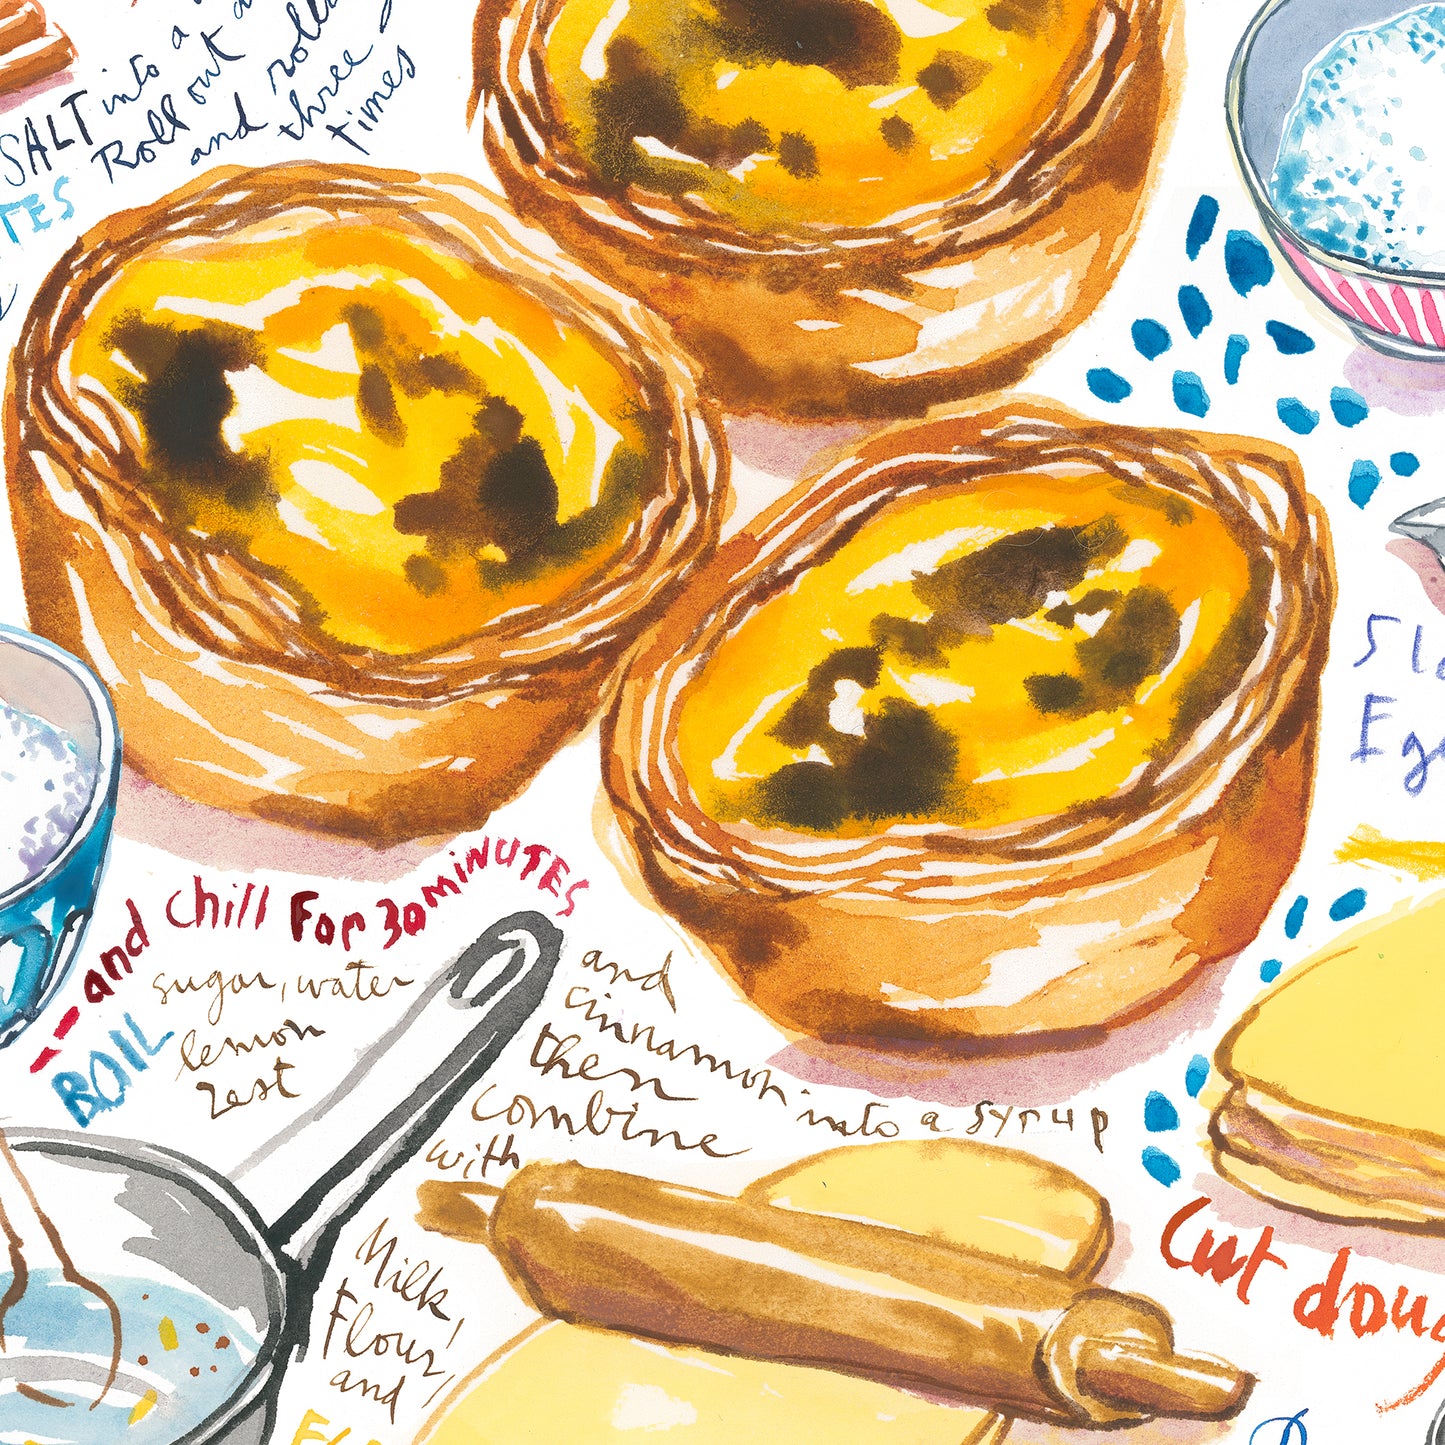 SALT into a
Roll out
and
three
times
TES
-- and chill For 30 MINUTES
BOIL
sugar, water
lemon
zest
and
cinnamon into a syrup
then
combine
with
Milk,
Flour,
and
Cut doug